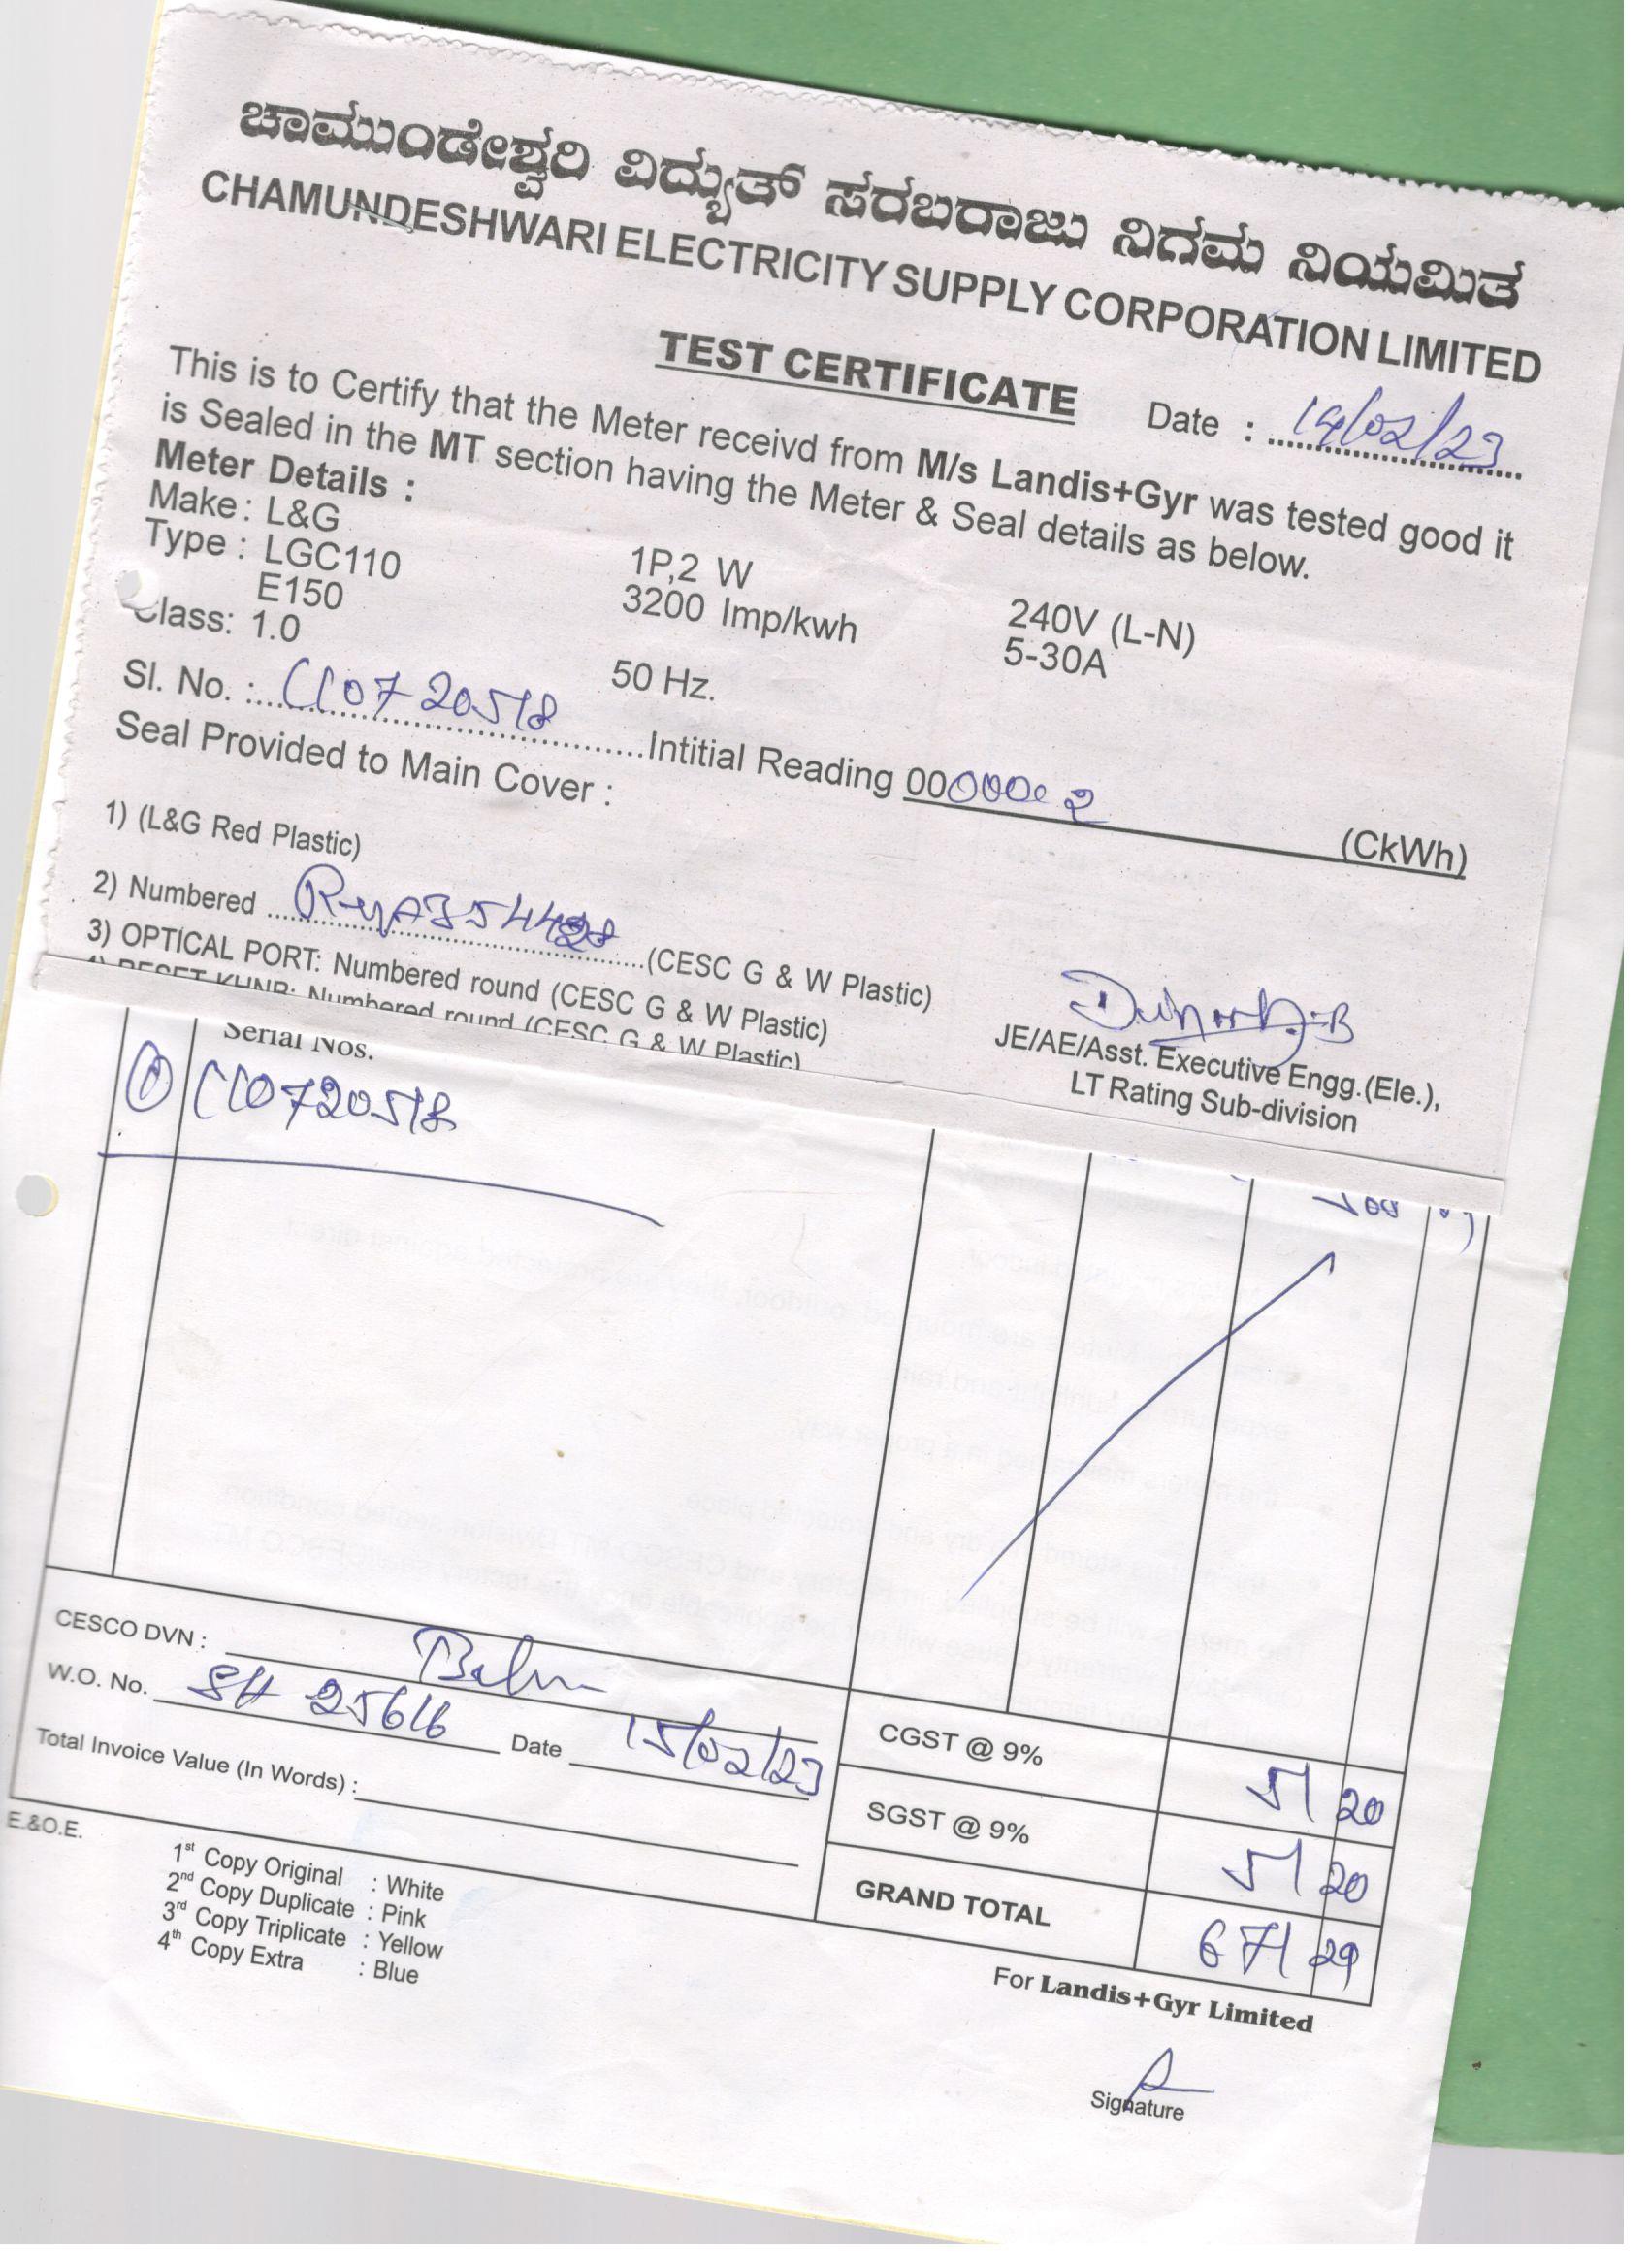 ಚಾಮುಂಡೇಶ್ವರಿ ವಿದ್ಯುತ್ ಸರಬರಾಜು ನಿಗಮ ನಿಯಮಿತ
CHAMUNDESHWARI ELECTRICITY SUPPLY CORPORATION LIMITED
TEST CERTIFICATE
Date : 14/02/23
This is to Certify that the Meter receivd from M/s Landis+Gyr was tested good it
is Sealed in the MT section having the Meter & Seal details as below.
Meter Details :
Make : L&G
Type : LGC110 1P,2 W 240V (L-N)
E150 3200 Imp/kwh 5-30A
Class: 1.0 50 Hz.
Sl. No. : C10720518 Intitial Reading 00000.2 (CkWh)
Seal Provided to Main Cover :
1) (L&G Red Plastic)
2) Numbered (CESC G & W Plastic)
3) OPTICAL PORT: Numbered round (CESC G & W Plastic)
4) RESET KHNB: Numbered round (CESC G & W Plastic)
JE/AE/Asst. Executive Engg.(Ele.),
LT Rating Sub-division
Serial Nos.
1 C10720518
CESCO DVN :
W.O. No. SH 25616 Date 15/02/23
Total Invoice Value (In Words) :
CGST @ 9% 51 20
SGST @ 9% 51 20
GRAND TOTAL 671 29
E.&O.E.
1st Copy Original : White
2nd Copy Duplicate : Pink
3rd Copy Triplicate : Yellow
4th Copy Extra : Blue
For Landis+Gyr Limited
Signature